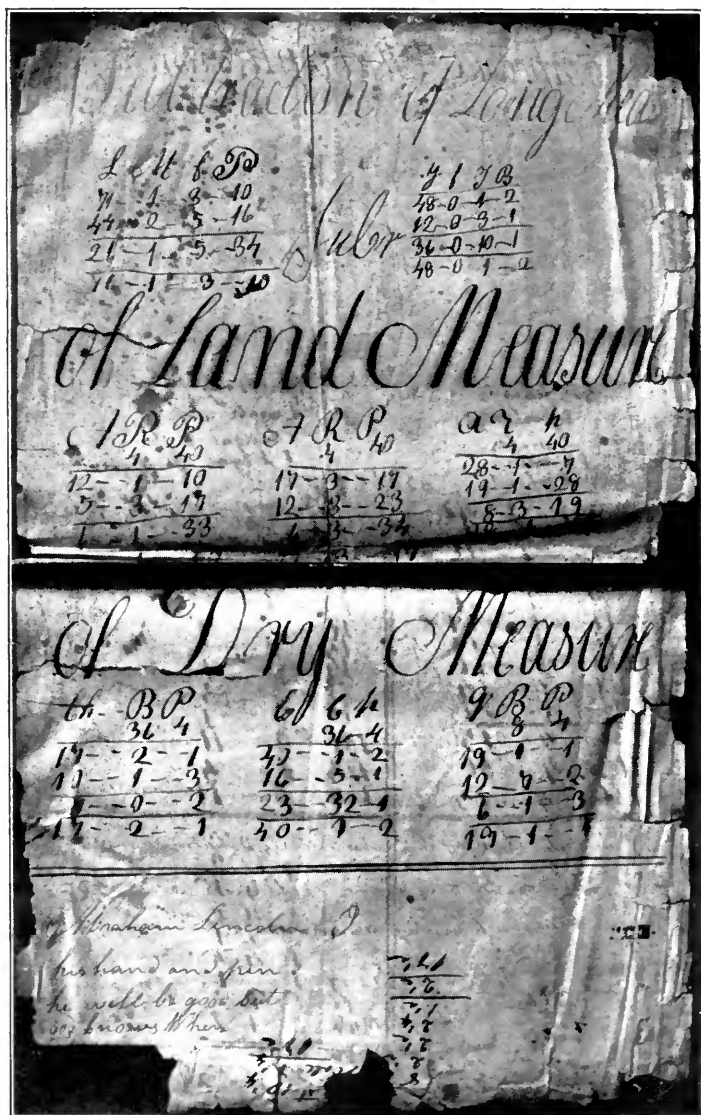 Subtraction of Long Mea
L M f P
71--1--3--10
44--2--5--16
21--1--5--34
71--1--3--10
Subr
y f I B
48-0-1-2
12-0-3-1
36-0-10-1
48-0-1-2
of Land Measure
A R P
4 40
12--1--10
5--3--17
6--1--33
A R P
4 40
17--3--17
12--3--23
4--3--34
a r p
4 40
28--1--7
19--1--28
8--3--19
of Dry Measure
ch B P
36 4
17--2--1
10--1--3
7--0--2
17--2--1
36-4
40--1--2
16--5--1
23--32-1
40--1--2
q B P
8 4
19--1--1
12--0--2
6--1--3
19--1--1
Abraham Lincoln
his hand and pen
he will be good but
god knows When